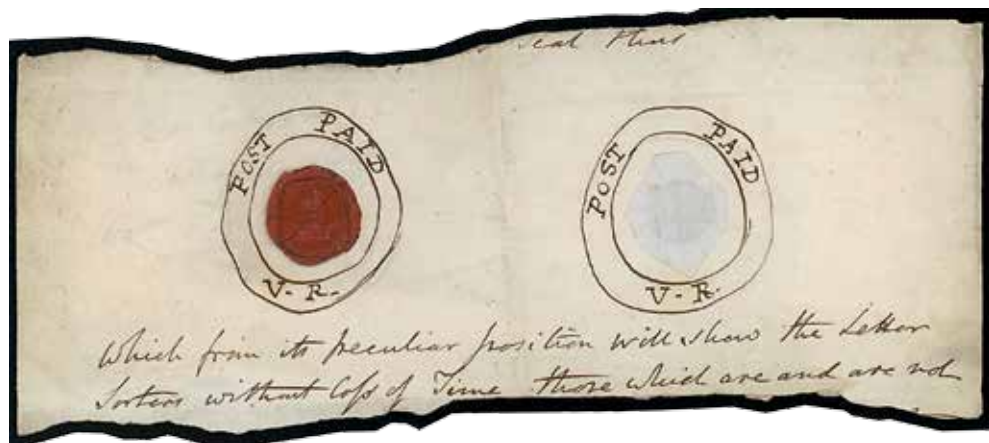 seal thus
POST PAID
V-R-
POST PAID
V-R-
which from its peculiar position will show the Letter
Sorters without Loss of Time those which are and are not